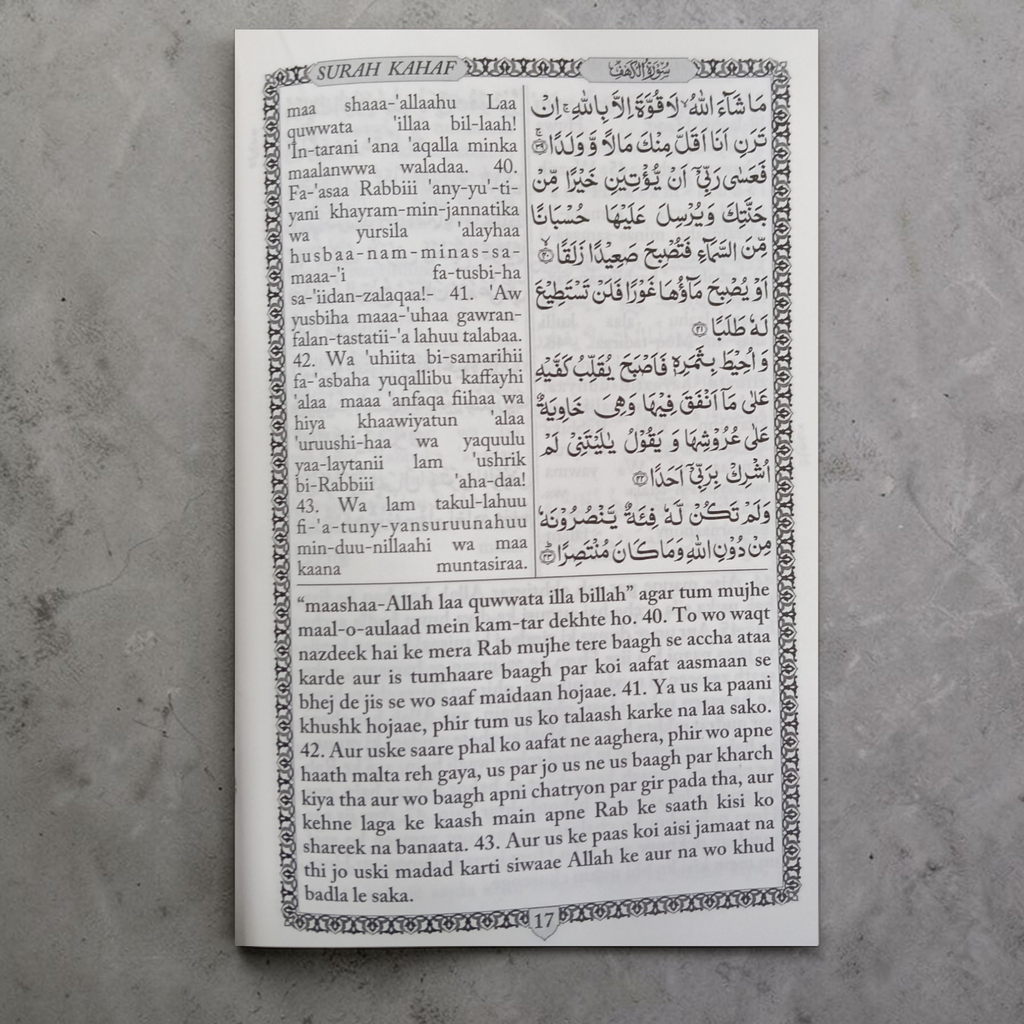 SURAH KAHAF
سُوۡرَةُ الۡكَهۡف
maa shaaa-'allaahu Laa
quwwata 'illaa bil-laah!
'In-tarani 'ana 'aqalla minka
maalanwwa waladaa. 40.
Fa-'asaa Rabbiii 'any-yu'-ti-
yani khayram-min-jannatika
wa yursila 'alayhaa
husbaa-nam-minas-sa-
maaa-'i fa-tusbi-ha
sa-'iidan-zalaqaa!- 41. 'Aw
yusbiha maaa-'uhaa gawran-
falan-tastatii-'a lahuu talabaa.
42. Wa 'uhiita bi-samarihii
fa-'asbaha yuqallibu kaffayhi
'alaa maaa 'anfaqa fiihaa wa
hiya khaawiyatun 'alaa
'uruushi-haa wa yaquulu
yaa-laytanii lam 'ushrik
bi-Rabbiii 'aha-daa!
43. Wa lam takul-lahuu
fi-'a-tuny-yansuruunahuu
min-duu-nillaahi wa maa
kaana muntasiraa.
مَا شَآءَ اللّٰهُ ۙ لَا قُوَّةَ اِلَّا بِاللّٰهِ ۚ اِنۡ
تَرَنِ اَنَا اَقَلَّ مِنۡكَ مَالًا وَّ وَلَدًا ۚ‏ ﴿۳۹﴾
فَعَسٰى رَبِّىۡۤ اَنۡ يُّؤۡتِيَنِ خَيۡرًا مِّنۡ
جَنَّتِكَ وَ يُرۡسِلَ عَلَيۡهَا حُسۡبَانًا
مِّنَ السَّمَآءِ فَتُصۡبِحَ صَعِيۡدًا زَلَقًا ۙ‏ ﴿۴۰﴾
اَوۡ يُصۡبِحَ مَآؤُهَا غَوۡرًا فَلَنۡ تَسۡتَطِيۡعَ
لَهٗ طَلَبًا‏ ﴿۴۱﴾
وَ اُحِيۡطَ بِثَمَرِهٖ فَاَصۡبَحَ يُقَلِّبُ كَفَّيۡهِ
عَلٰى مَاۤ اَنۡفَقَ فِيۡهَا وَهِىَ خَاوِيَةٌ
عَلٰى عُرُوۡشِهَا وَ يَقُوۡلُ يٰلَيۡتَنِىۡ لَمۡ
اُشۡرِكۡ بِرَبِّىۡۤ اَحَدًا‏ ﴿۴۲﴾
وَلَمۡ تَكُنۡ لَّهٗ فِئَةٌ يَّنۡصُرُوۡنَهٗ
مِنۡ دُوۡنِ اللّٰهِ وَمَا كَانَ مُنۡتَصِرًا ؕ‏ ﴿۴۳﴾
“maashaa-Allah laa quwwata illa billah” agar tum mujhe
maal-o-aulaad mein kam-tar dekhte ho. 40. To wo waqt
nazdeek hai ke mera Rab mujhe tere baagh se accha ataa
karde aur is tumhaare baagh par koi aafat aasmaan se
bhej de jis se wo saaf maidaan hojaae. 41. Ya us ka paani
khushk hojaae, phir tum us ko talaash karke na laa sako.
42. Aur uske saare phal ko aafat ne aaghera, phir wo apne
haath malta reh gaya, us par jo us ne us baagh par kharch
kiya tha aur wo baagh apni chatryon par gir pada tha, aur
kehne laga ke kaash main apne Rab ke saath kisi ko
shareek na banaata. 43. Aur us ke paas koi aisi jamaat na
thi jo uski madad karti siwaae Allah ke aur na wo khud
badla le saka.
17